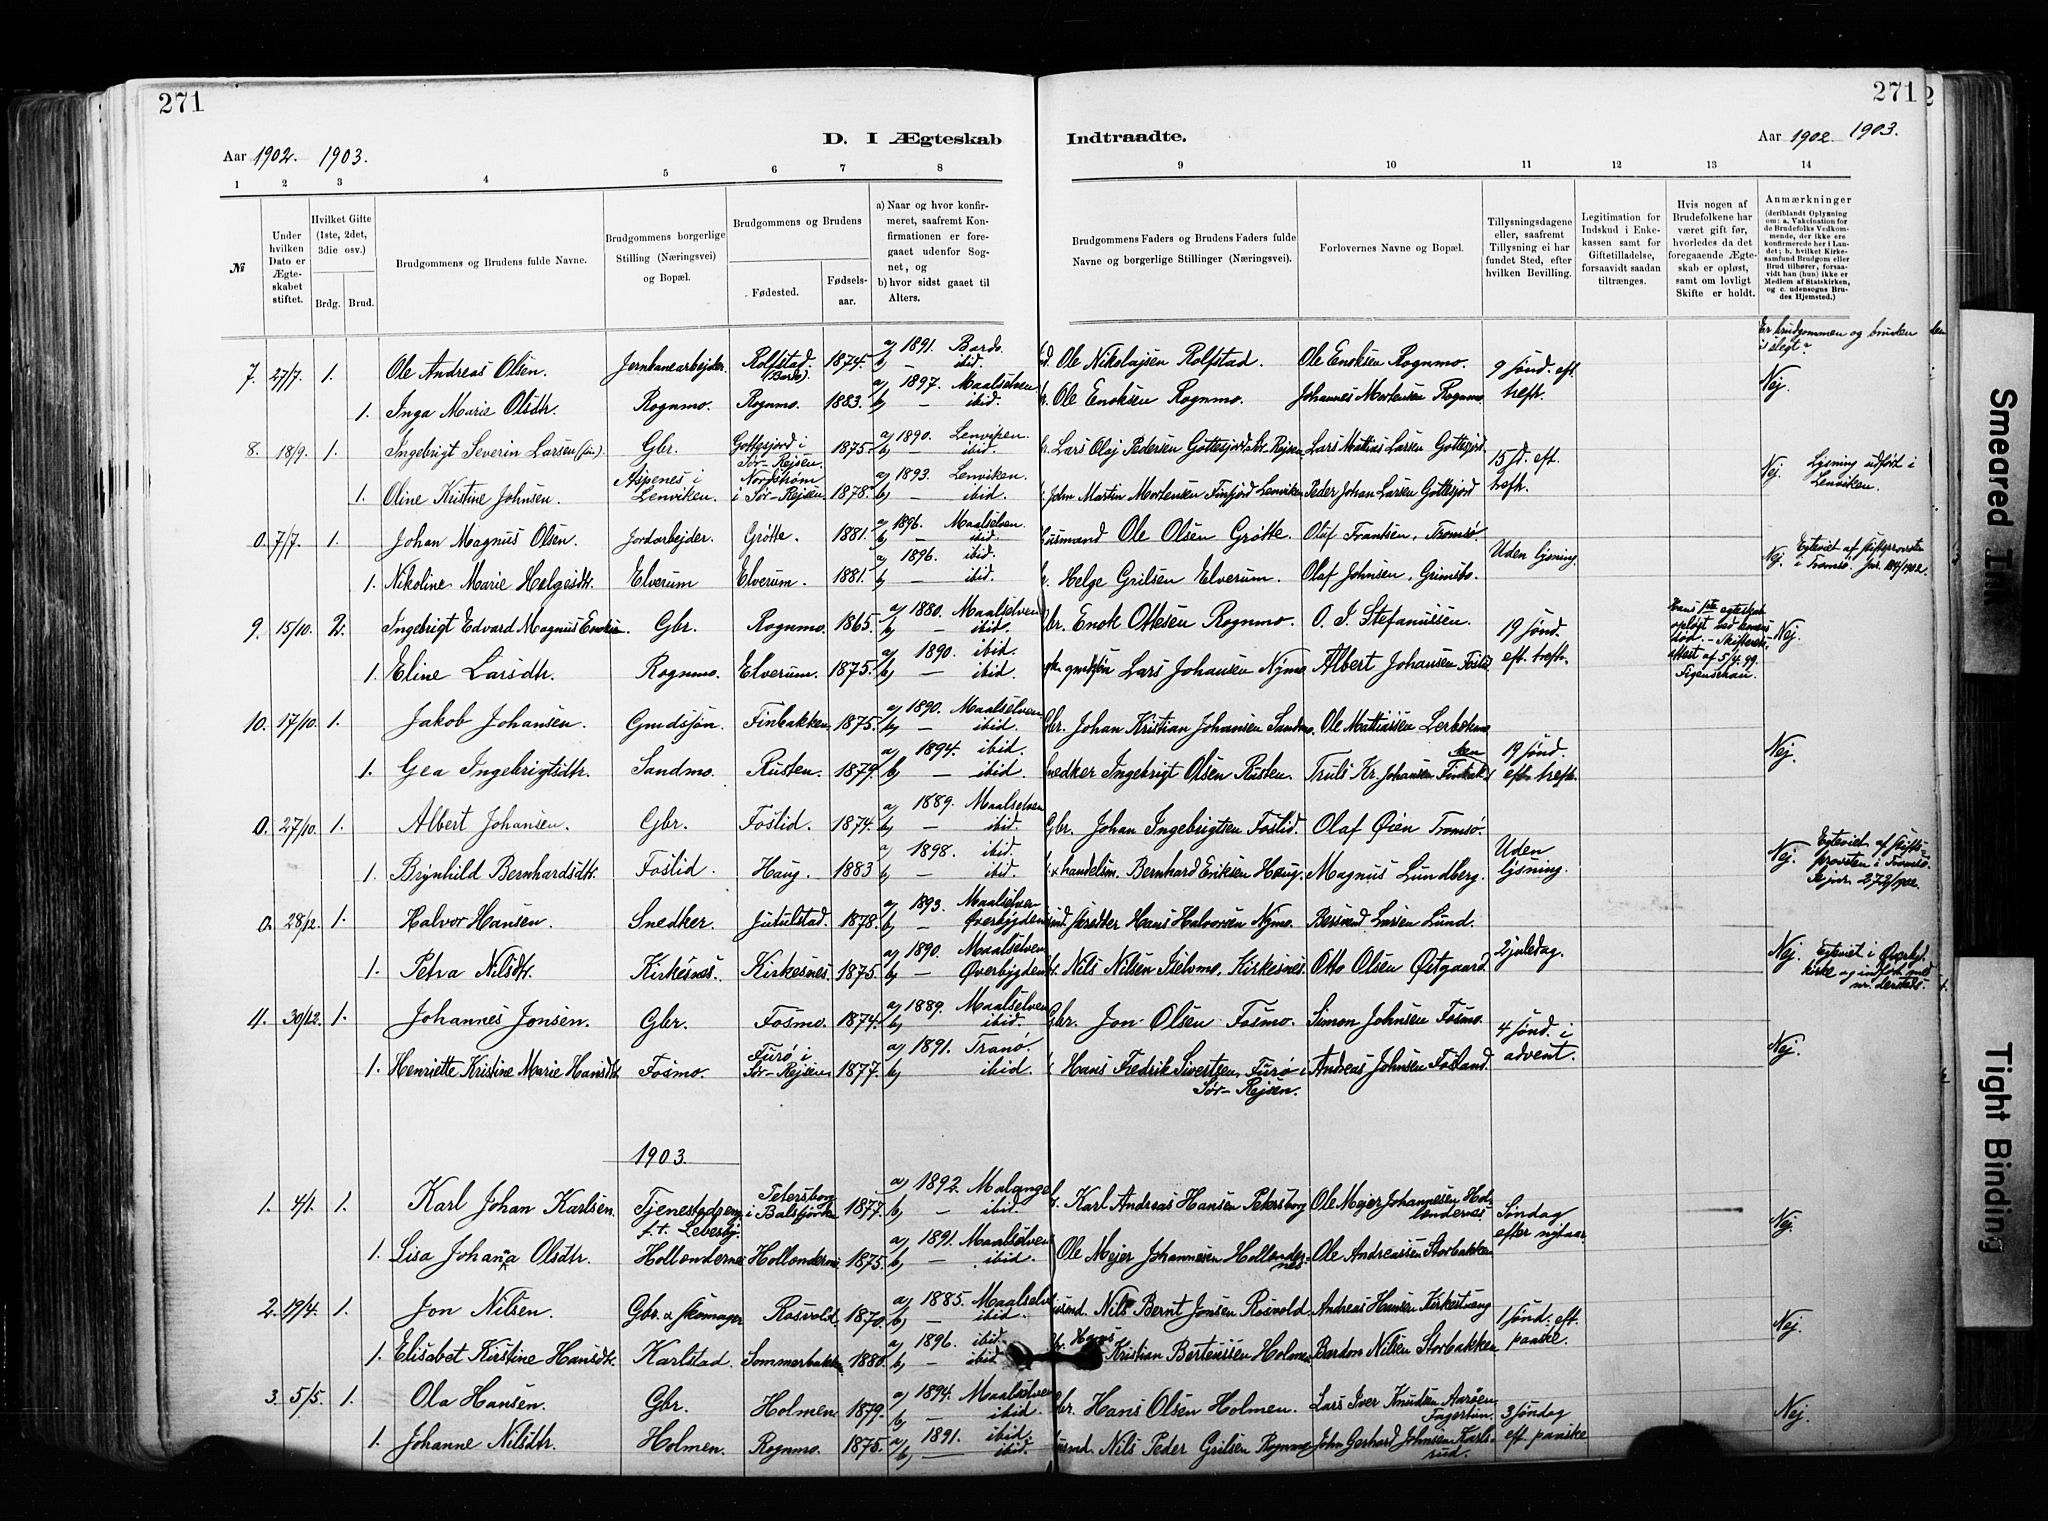 271
271
D. I Ægteskab Indtraadte.
Aar 1902. 1903.
Aar 1902 1903.
1 2 3 4 5 6 7 8 9 10 11 12 13 14
№
Under hvilken Dato er Ægteskabet stiftet.
Hvilket Gifte (1ste, 2det, 3die osv.)
Brdg. Brud.
Brudgommens og Brudens fulde Navne.
Brudgommens borgerlige Stilling (Næringsvei) og Bopæl.
Brudgommens og Brudens
Fødested.
Fødselsaar.
a) Naar og hvor konfirmeret, saafremt Konfirmationen er foregaaet udenfor Sognet, og
b) hvor sidst gaaet til Alters.
Brudgommens Faders og Brudens Faders fulde Navne og borgerlige Stillinger (Næringsvei).
Forlovernes Navne og Bopæl.
Tillysningsdagene eller, saafremt Tillysning ei har fundet Sted, efter hvilken Bevilling.
Legitimation for Indskud i Enkekassen samt for Giftetilladelse, forsaavidt saadan tiltrænges.
Hvis nogen af Brudefolkene har været gift før, hvorledes da det foregaaende Ægteskab er opløst, samt om lovligt Skifte er holdt.
Anmærkninger
(deriblandt Oplysning om: a. Vakcination for Brudefolks Vedkommende, der ikke ere konfirmerede her i Landet; b. hvilket Kirkesamfund Brudgom eller Brud tilhører, forsaavidt han (hun) ikke er Medlem af Statskirken, og c. udensogns Brudes Hjemsted.)
Er brudgommen og bruden i slegt?
7. 27/7 1. Ole Andreas Olsen. Jernbanearbejder. Rolfstad. (Bardo) 1874. a) 1891. Bardo. b) ibid. Ole Nikolajsen Rolfstad. Ole Enoksen Rognmo. 9 sønd. eft. treft. Nej.
1. Inga Marie Olsdtr. Rognmo. Rognmo. 1883. a) 1897. Maalselven b) — ibid. Ole Enoksen Rognmo. Johannes Mortensen Rognmo
8. 18/9 1. Ingebrigt Severin Larsen Gbr. Gottesjord i Sør-Rejsen. 1875. a) 1890. Lenviken. b) — ibid. Lars Olaj Pedersen Gottesjord Sør-Rejsen Lars Mathias Larsen Gottesjord. 15 sd. eft. treft. Nej. Lysning udført i Lenviken.
1. Oline Kristine Johnsen. Aspenes i Lenviken. i Sør-Rejsen 1878. a) 1893. Lenviken. b) — ibid. John Martin Mortensen Finfjord Lenviken Peder Johan Larsen Gottesjord
0. 7/7 1. Johan Magnus Olsen. Jordarbejder. Grøtte. 1881. a) 1896. Maalselven. b) — ibid. Husmand Ole Olsen Grøtte. Olaf Frantsen, Tromsø. Uden lysning. Nej. Egteviet af stiftsprovsten i Tromsø.
1. Nikoline Marie Helgesdtr. Elverum Elverum. 1881. a) 1896. ibid. b) — ibid. Helge Grilsen Elverum. Olaf Johnsen, Grimsbo.
9. 15/10. 2. Ingebrigt Edvard Magnus Enoksen. Gbr. Rognmo. 1865. a) 1880. Maalselven b) — ibid. Gbr. Enok Ottesen Rognmo. O. J. Stefanussen. 19 sønd. eft. treft. Hans 1ste egteskab opløst ved konens død. – Skifteretsattest af 5/4.99. Figenschau. Nej.
1. Eline Larsdtr. Rognmo. Elverum. 1875. a) 1890. ibid. b) — ibid. Lars Johansen Nymo Albert Johansen Foslid
10. 17/10. 1. Jakob Johansen. Gmdsjøn. Finbakken. 1875. a) 1890. Maalselven b) — ibid. Gbr. Johan Kristian Johansen Sandmo. Ole Mathiassen Lerbekmo 19 sønd. eft. trefk. Nej.
1. Gea Ingebrigtsdtr. Sandmo. Rusten. 1879. a) 1894. ibid. b) — ibid. Snedker Ingebrigt Olsen Rusten. Truls Kr. Johansen Finbakken
0. 27/10. 1. Albert Johansen. Gbr. Foslid. 1874. a) 1889. Maalselven b) — ibid. Gbr. Johan Ingebrigtsen Foslid. Olaf Øien Tromsø. Uden lysning. Nej. Egteviet af stiftsprovsten i Tromsø. Se jnr. 272/1902.
1. Brynhild Bernhardsdtr. Foslid. Haug. 1883 a) 1898. ibid. b) — ibid. handelsm. Bernhard Eriksen Haug. Magnus Lundberg.
0. 28/12. 1. Halvor Hansen. Snedker. Jutulstad. 1878. a) 1893. Maalselven b) — Øverbygden Hans Halvorsen Nymo. Bersvend Larsen Lund. 2 juledag. Nej. Egteviet i Øverbyg. kirke og indført med nr. dersteds.
1. Petra Nilsdtr. Kirkesnes. Kirkesnes. 1875. a) 1890. Maalselven b) — Øverbygden Nils Nilsen Iselvmo, Kirkesnes. Otto Olsen Østgaard.
11. 30/12. 1. Johannes Jonsen. Gbr. Fosmo. 1874. a) 1889. Maalselven b) — ibid. Gbr. Jon Olsen Fosmo. Simon Johnsen Fosmo. 4 sønd. i advent. Nej.
1. Henriette Kristine Marie Hansdtr. Fosmo. Furø i Sør-Rejsen. 1877. a) 1891. Tranø. b) ibid. Hans Fredrik Sivertsen, Furø i Sør-Rejsen. Andreas Johnsen Fosland.
1903.
1. 4/1. 1. Karl Johan Karlsen. Tjenestedreng f.t. Levesby. Petersborg i Balsfjorden 1877. a) 1892. Malangen b) — ibid. Karl Andreas Hansen Petersborg Ole Mejer Johannesen Hollendernes. Søndag efter nytaar. Nej.
1. Lisa Johanna Olsdtr. Hollendernes Hollendernes 1875. a) 1891. Maalselven b) — ibid. Ole Mejer Johannesen Hollendernes Ole Andreassen Storbakken
2. 19/4. 1. Jon Nilsen. Gbr. & skomager Rosvold. 1870. a) 1885. Maalselv b) — ibid. Husmd. Nils Bernt Jonsen Rosvold Andreas Hansen Kirkestvang 1 sønd. eft. paaske. Nej.
1. Elisabet Kirstine Hansdtr. Karlstad. Sommerbakken 1880. a) 1896. ibid. b) — ibid Hans Kristian Berteussen Holmen Bardon Nilsen Storbakken
3. 5/5. 1. Ola Hansen. Gbr. Holmen 1879. a) 1894. Maalselven b) — ibid. Gbr. Hans Olsen Holmen. Lars Iver Knudsen Aarøen Fagertun. 3 søndag eft. paaske Nej.
1. Johanne Nilsdtr. Holmen. Rognmo. 1875. a) 1891. ibid. b) — ibid. Husmd. Nils Peder Grilsen Rognmo John Gerhard Johnsen Karlsrud.
Smeared Ink
Tight Binding